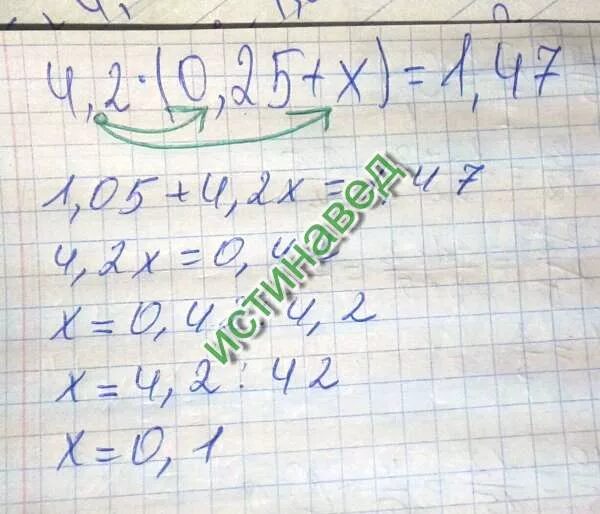 4,2·(0,25+x)=1,47
1,05+4,2x=1,47
4,2x=0,42
x=0,42:4,2
x=4,2:42
x=0,1
истинавед